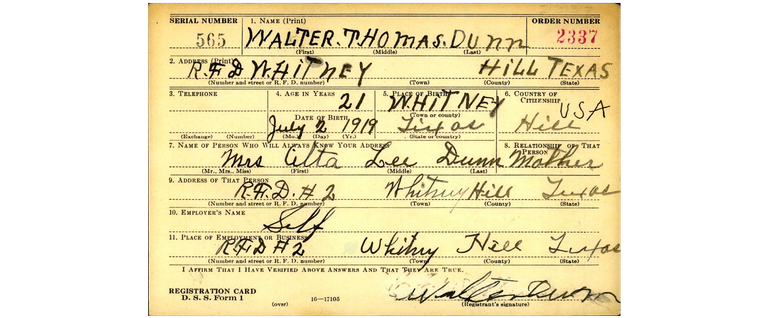 SERIAL NUMBER 1. NAME (Print) ORDER NUMBER
565 WALTER. THOMAS. DUNN 2337
(First) (Middle) (Last)
2. ADDRESS (Print)
R.F.D WHITNEY HILL TEXAS
(Number and street or R. F. D. number) (Town) (County) (State)
3. TELEPHONE 4. AGE IN YEARS 5. PLACE OF BIRTH 6. COUNTRY OF CITIZENSHIP
21 WHITNEY USA
DATE OF BIRTH (Town or county)
July 2 1919 Texas Hill
(Exchange) (Number) (Mo.) (Day) (Yr.) (State or country)
7. NAME OF PERSON WHO WILL ALWAYS KNOW YOUR ADDRESS 8. RELATIONSHIP OF THAT PERSON
Mrs Alta Lee Dunn Mother
(Mr., Mrs., Miss) (First) (Middle) (Last)
9. ADDRESS OF THAT PERSON
R.F.D. #2 Whitney Hill Texas
(Number and street or R. F. D. number) (Town) (County) (State)
10. EMPLOYER'S NAME
Self
11. PLACE OF EMPLOYMENT OR BUSINESS
RFD #2 Whitny Hill Texas
(Number and street or R. F. D. number) (Town) (County) (State)
I AFFIRM THAT I HAVE VERIFIED ABOVE ANSWERS AND THAT THEY ARE TRUE.
REGISTRATION CARD Walter Dunn
D. S. S. Form 1 (over) 16—17105 (Registrant's signature)